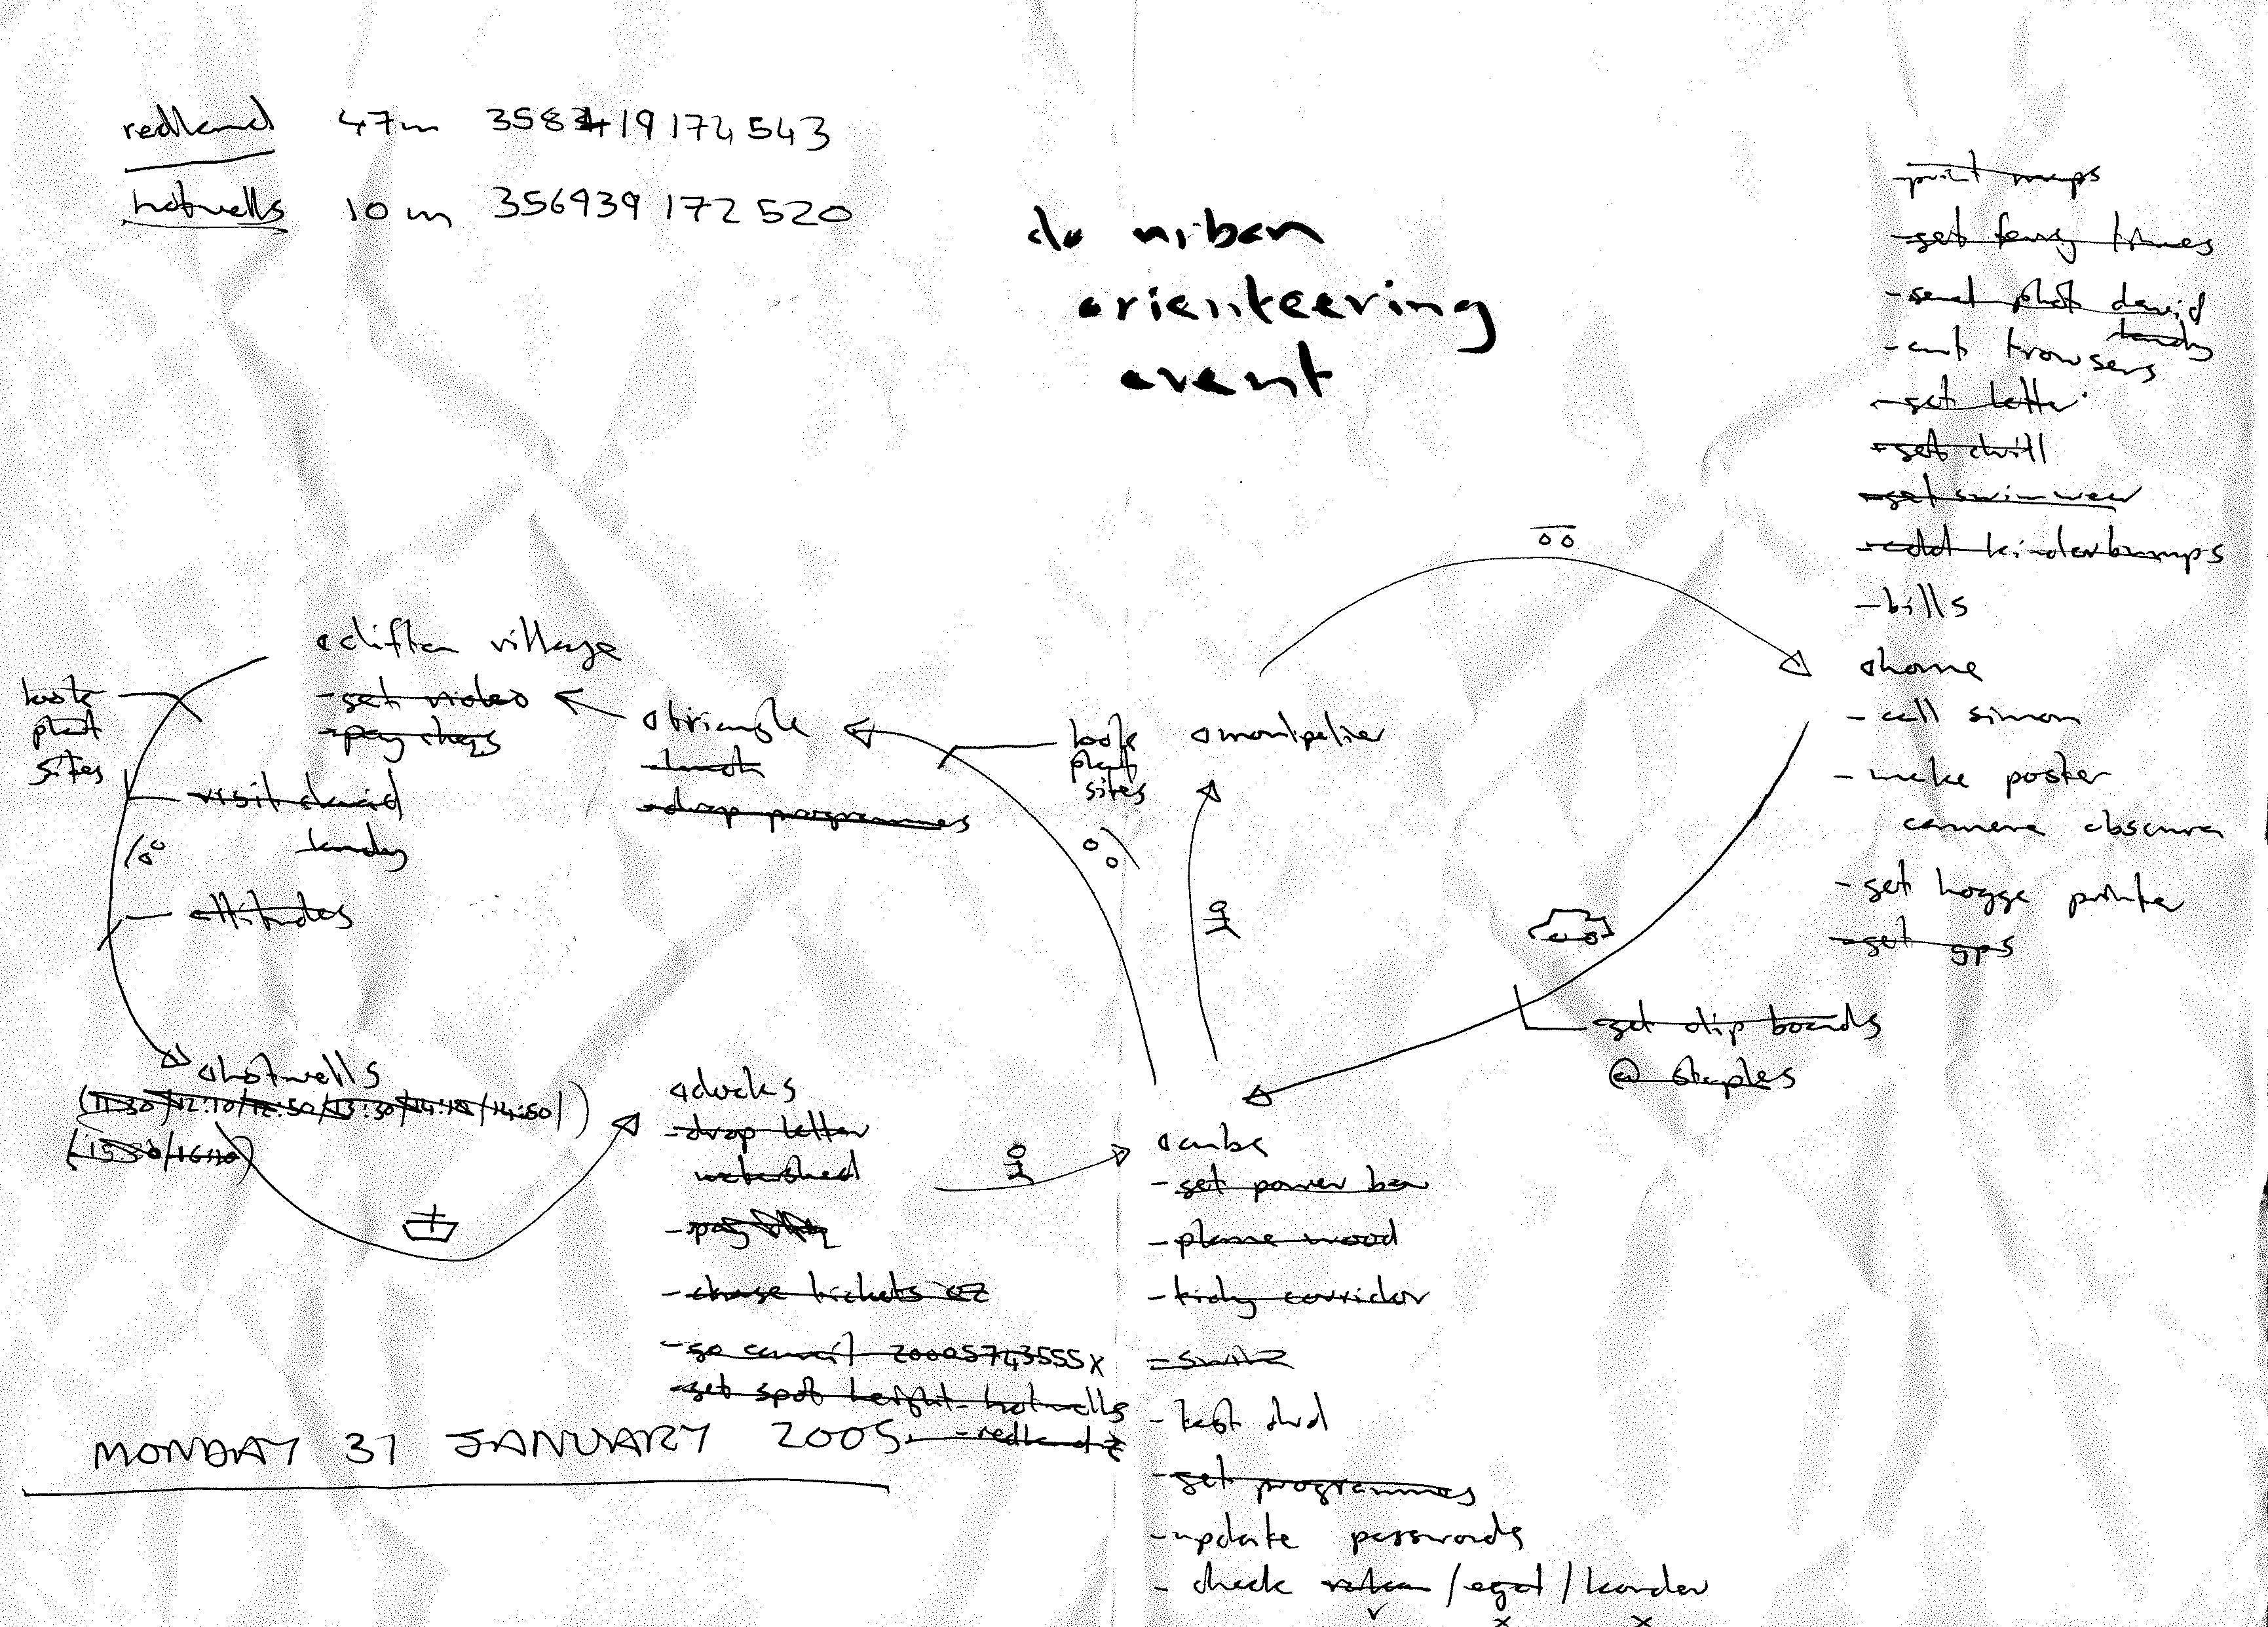 redland 47m 358419 172543
hotwells 10m 356939 172520
do urban
orienteering
event
- print maps
- get ferry times
- send photo david
landy
- cut trowsers
- get letter
- get drill
- get swimwear
- add kinderbumps
- bills
home
- call simon
- make poster
camera obscura
- get hogge printer
- get gps
- get clip boards
@ staples
montpelier
look
plant
sites
triangle
- lunch
- drop programmes
clifton village
- get video
- pay cheqs
look
plant
sites
- visit david
landy
- altitudes
hotwells
(11:30/12:10/12:50/13:30/14:10/14:50/)
(15:30/16:10)
docks
- drop letter
watershed
- pay
- chase tickets
- go council 20005743555X
- get spot height - hotwells
- redland
cube
- get power bar
- plane wood
- tidy corridor
- test dvd
- get programmes
- update passwords
- check / egat / kondor
MONDAY 31 JANUARY 2005